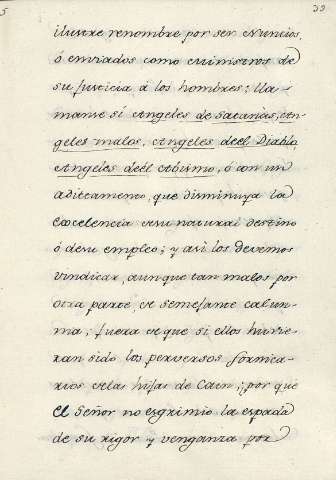 5 39
ilustre renombre por ser Nuncios,
ó enviados como ministros de
su Justicia, â los hombres: lla-
manse sí Angeles de Satanàs, An-
geles malos, Angeles deel Diablo,
Angeles deêl Abismo, ó con un
aditamento, que disminuya la
excelencia de su natural destino
ó de su empleo; y asi los devemos
vindicar, aunque tan malos por
otra parte, de semejante calum-
nia; fuera de que si ellos huvie-
ran sido los perversos fornica-
rios de las hijas de Cain; ¿por que
el Señor no esgrimio la espada
de su rigor y venganza por